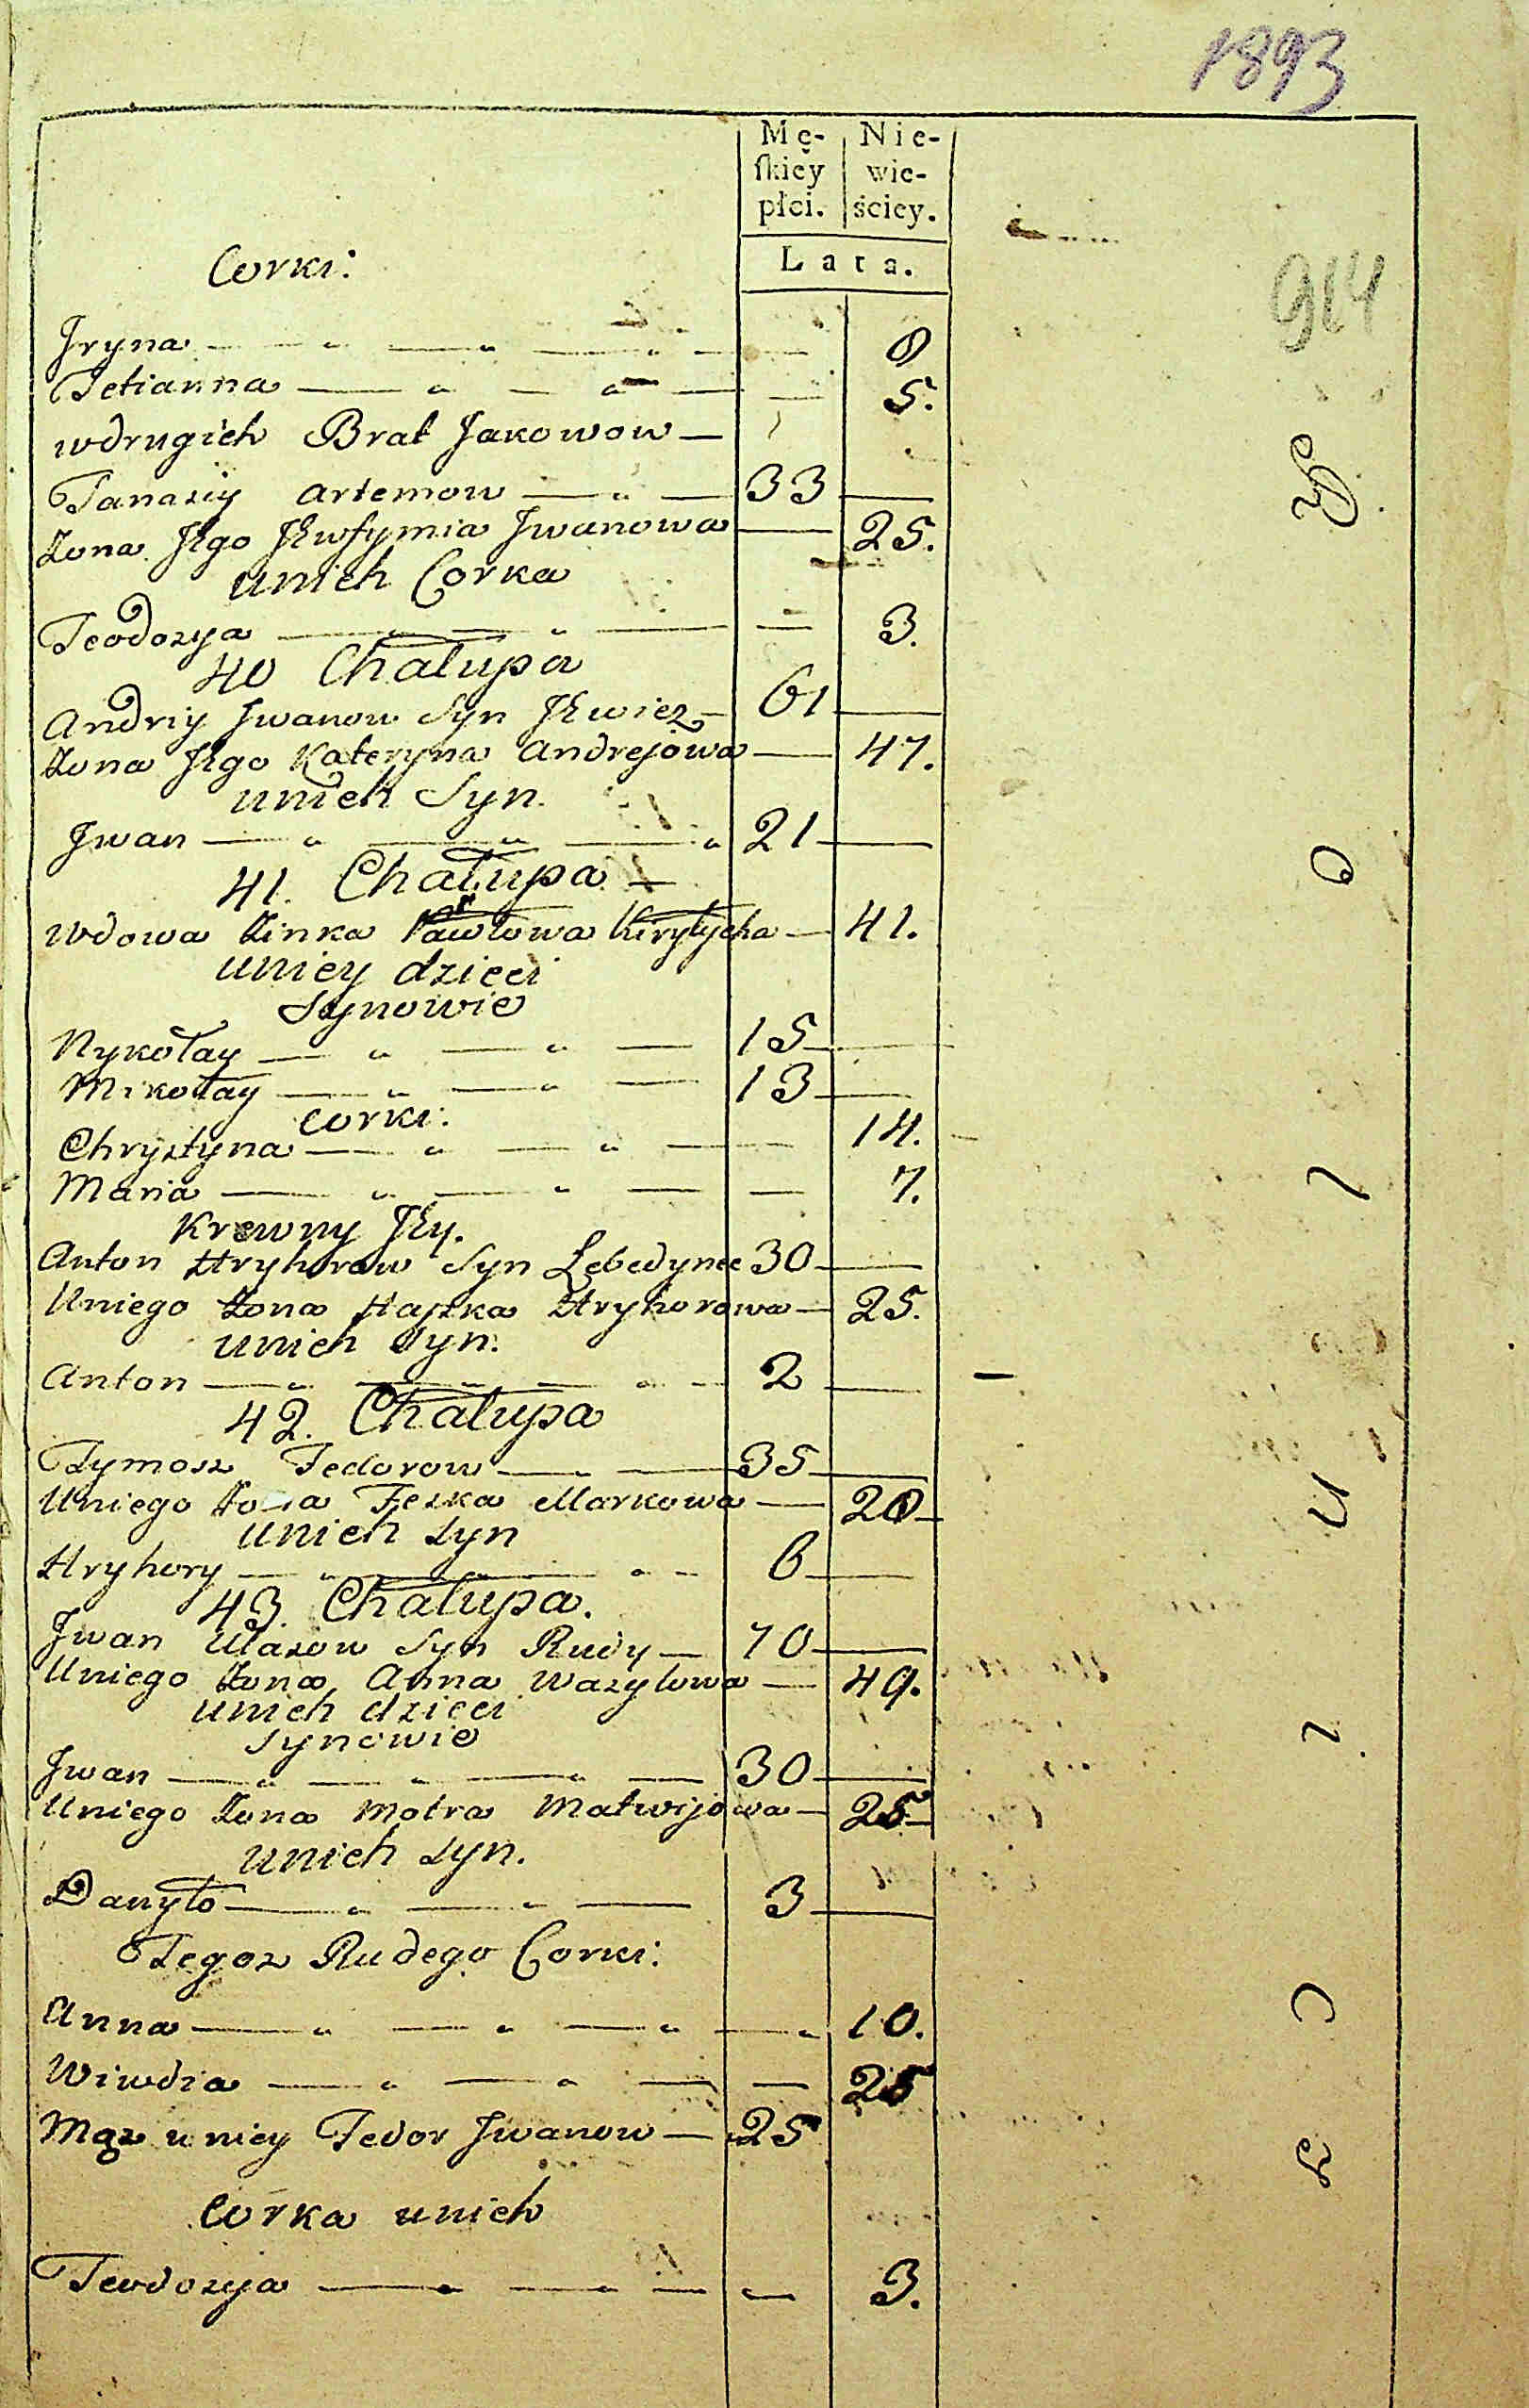 1893
Mę- Nie-
skiey wie-
płci. ściey.
Lata.
914
Corki:
Jryna — " — " — " — — 8
Tetianna — " — " — — 5.
wdrugich Brat Jakowow —
Tanasiy Artemow — " — 33 —
Żona Jego Jewfymia Jwanowa — 25.
unich Corka
Teodozya — " — " — — 3.
40 Chałupa
Andriy Jwanow Syn — 61 —
Żona Jego Kateryna Andrejowa — 47.
unich Syn.
Jwan — " — " — " 21 —
41. Chałupa —
Wdowa Zinka Pawłowa Kiryłycha — 41.
uniey dzieci
Synowie
Nykołay — " — " — 15 —
Mikołay — " — " — 13 —
Corki:
Chrystyna — " — " — — 14.
Maria — " — " — — 7.
Krewny Jey.
Anton Hryhorow Syn Lebedynec 30 —
Uniego Żona Nastka Hryhorowa — 25.
unich Syn.
Anton — " — " — " — 2 —
42. Chałupa
Tymosz Fedorow — — 35 —
Uniego Żona Feska Markowa — 20 —
unich Syn
Hryhory — " — " — " — 6 —
43. Chałupa.
Jwan Ułasow Syn Rudy — 70 —
Uniego Żona Anna Wasylowa — 49.
unich dzieci
Synowie
Jwan — " — " — " — 30 —
Uniego Żona Motra Matwijowa — 25 —
unich Syn.
Danyło — " — " — 3 —
Tegoz Rudego Corki:
Anna — " — " — " — " 10.
Wiwdia — " — " — — 25
Mąz u niey Fedor Jwanow — 25
Corka unich
Teodozya — " — " — — 3.